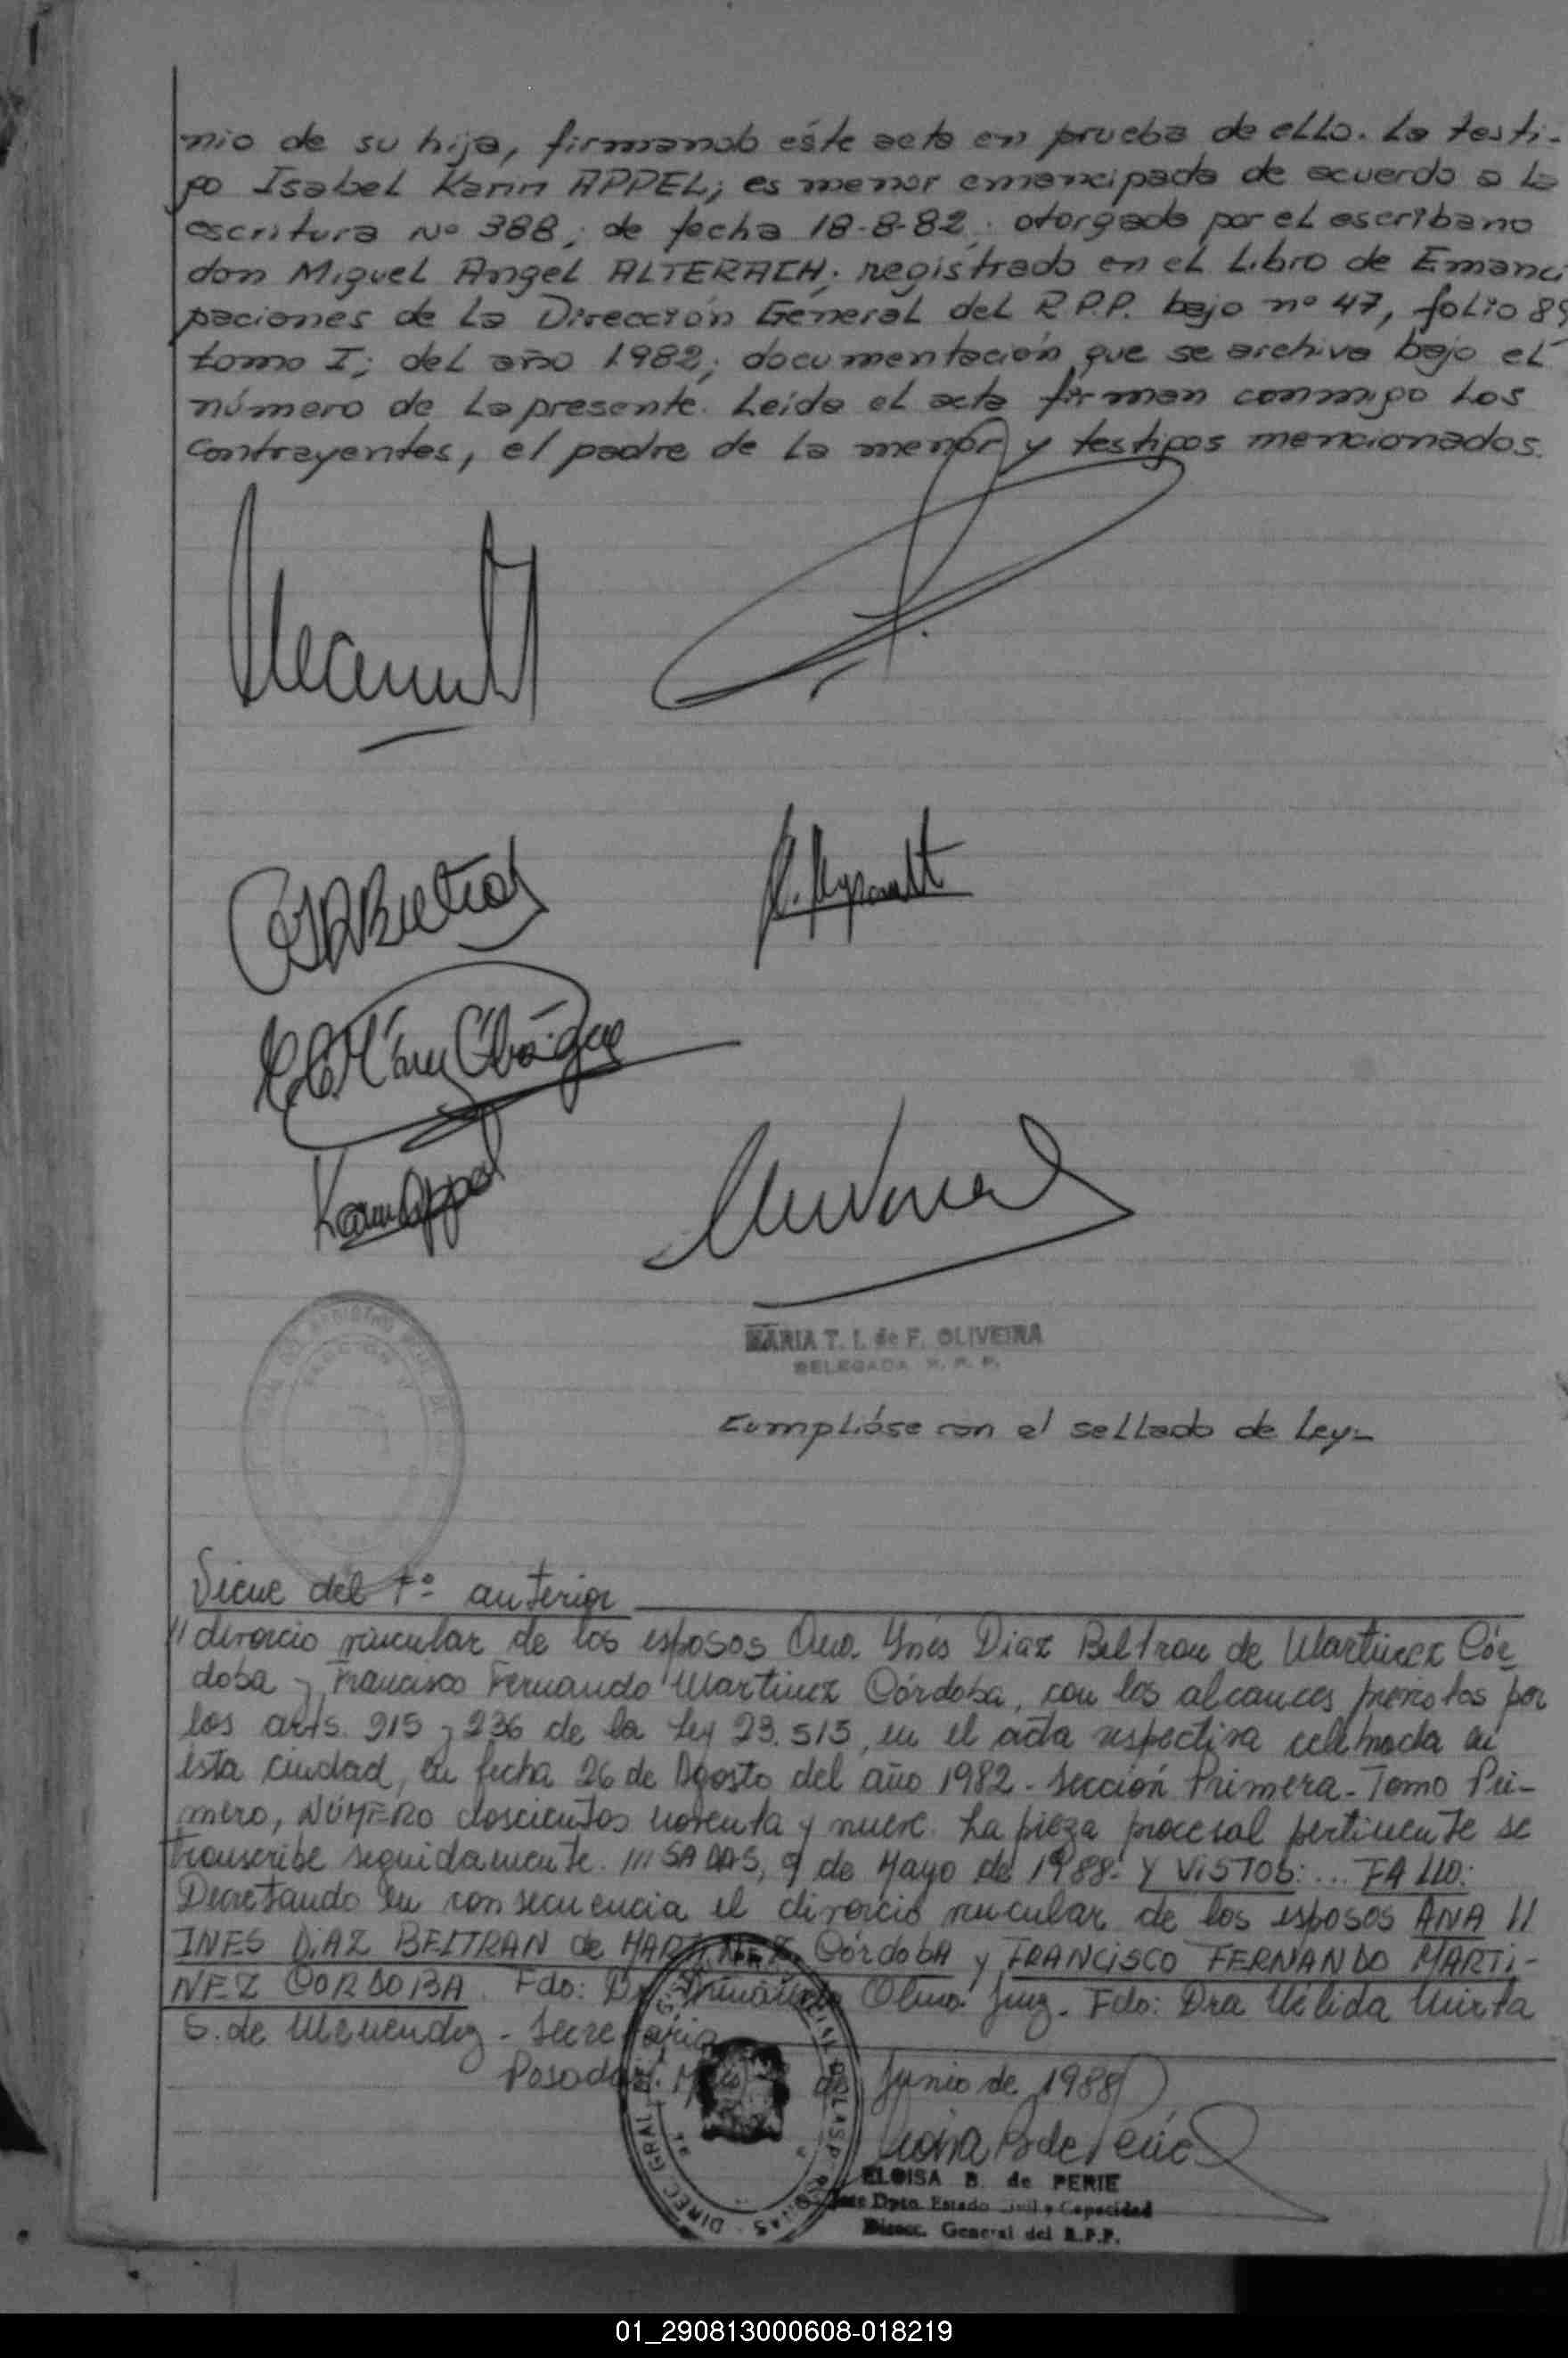 nio de su hija, firmando éste acta en prueba de ello. La testi-
go Isabel Karin APPEL; es menor emancipada de acuerdo a la
escritura Nº 388; de fecha 18-8-82; otorgada por el escribano
don Miguel Angel ALTERACH; registrado en el Libro de Emanci
paciones de la Dirección General del R.P.P. bajo nº 47, folio 89
tomo I; del año 1982; documentación que se archiva bajo el
número de la presente. Leída el acta firman conmigo los
contrayentes, el padre de la menor y testigos mencionados.
Karin Appel
MARIA T. I. de F. OLIVEIRA
DELEGADA R. P. P.
Cumplióse con el sellado de Ley-
Viene del fº anterior
// divorcio vincular de los esposos Ana Ynés Diaz Beltran de Martinez Cór-
doba y Francisco Fernando Martinez Córdoba, con los alcances previstos por
los arts. 215 y 236 de la Ley 23.515, en el acta respectiva celebrada en
esta ciudad, en fecha 26 de Agosto del año 1982 - Sección Primera - Tomo Pri-
mero, NÚMERO doscientos noventa y nueve. La pieza procesal pertinente se
transcribe seguidamente. ///SADAS, 9 de Mayo de 1988.- Y VISTOS: ... FALLO:
Decretando en consecuencia el divorcio vincular de los esposos ANA //
INES DIAZ BELTRAN de MARTINEZ Córdoba y FRANCISCO FERNANDO MARTI-
NEZ CORDOBA. Fdo: Dr. Olmo. Juez. Fdo: Dra Nélida Mirta
S. de Menendez - Secretaria
Posadas, de Junio de 1988
ELOISA B. de PERIE
Jefe Dpto. Estado Civil y Capacidad
Direcc. General del R.P.P.
01_290813000608-018219